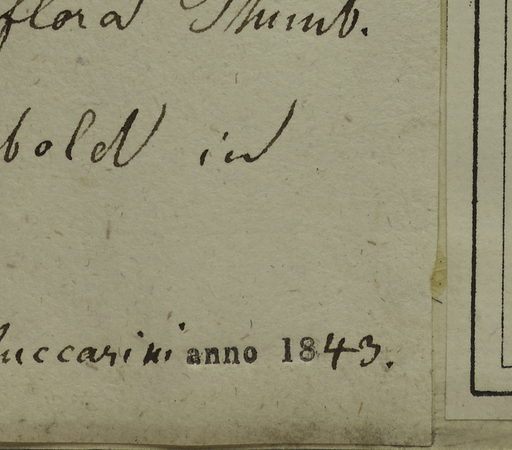 flora Thunb.
bold in
uccarini anno 1843.